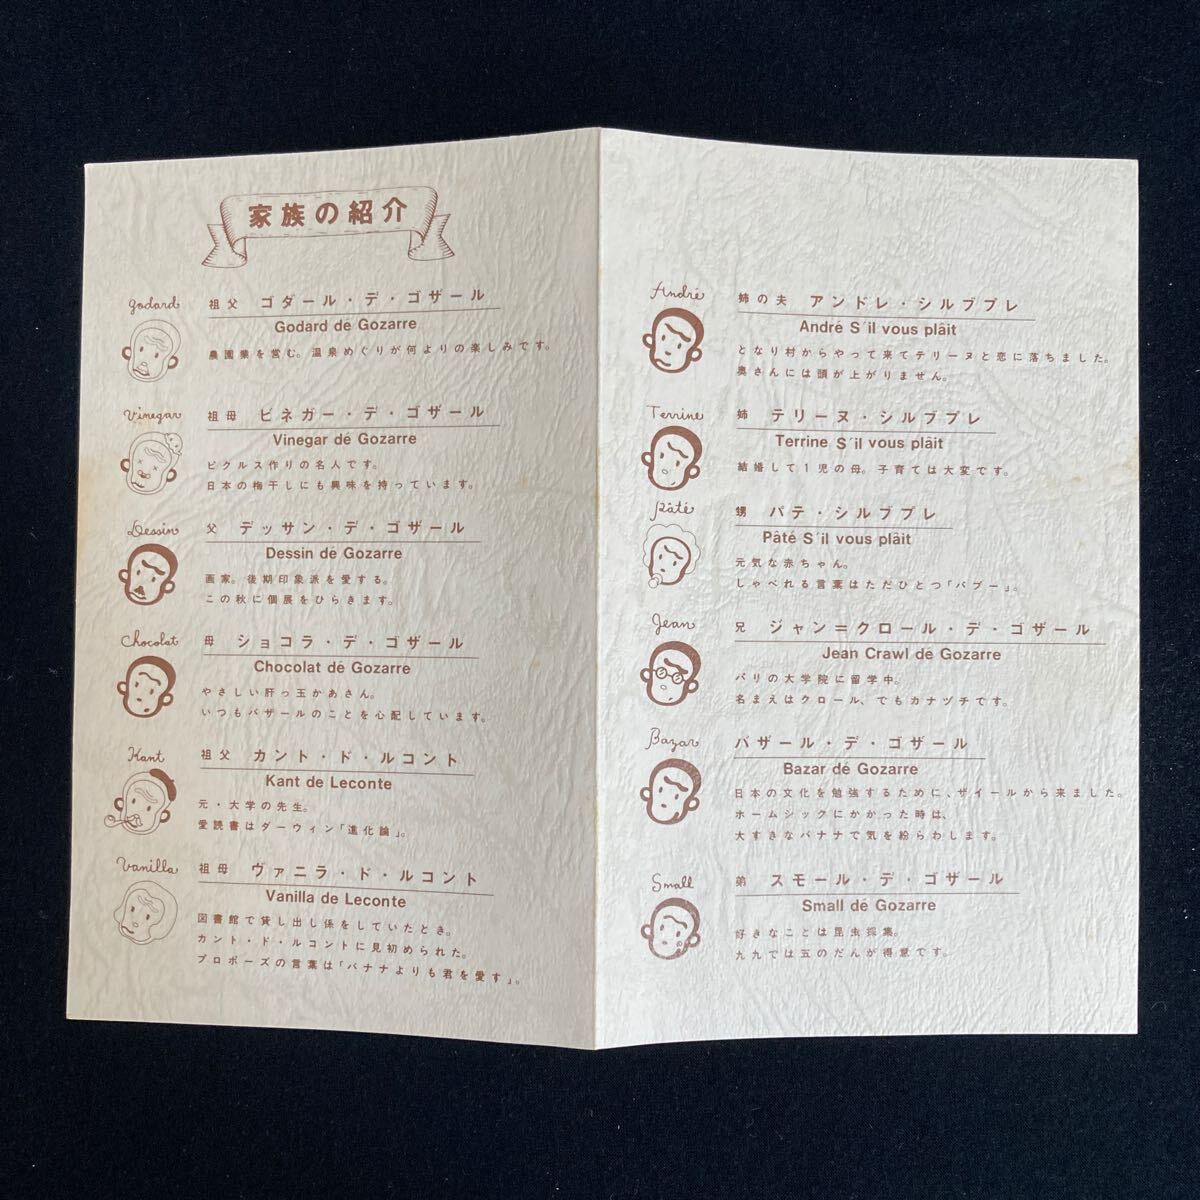 家族の紹介
Godard
祖父 ゴダール・デ・ゴザール
Godard dé Gozarre
農園業を営む。温泉めぐりが何よりの楽しみです。
Vinegar
祖母 ビネガー・デ・ゴザール
Vinegar dé Gozarre
ピクルス作りの名人です。
日本の梅干しにも興味を持っています。
Dessin
父 デッサン・デ・ゴザール
Dessin dé Gozarre
画家。後期印象派を愛する。
この秋に個展をひらきます。
Chocolat
母 ショコラ・デ・ゴザール
Chocolat dé Gozarre
やさしい肝っ玉かあさん。
いつもバザールのことを心配しています。
Kant
祖父 カント・ド・ルコント
Kant de Leconte
元・大学の先生。
愛読書はダーウィン「進化論」。
Vanilla
祖母 ヴァニラ・ド・ルコント
Vanilla de Leconte
図書館で貸し出し係をしていたとき。
カント・ド・ルコントに見初められた。
プロポーズの言葉は「バナナよりも君を愛す」。
André
姉の夫 アンドレ・シルブプレ
André S´il vous plâit
となり村からやって来てテリーヌと恋に落ちました。
奥さんには頭が上がりません。
Terrine
姉 テリーヌ・シルブプレ
Terrine S´il vous plâit
結婚して1児の母。子育ては大変です。
Pâté
甥 パテ・シルブプレ
Pâté S´il vous plâit
元気な赤ちゃん。
しゃべれる言葉はただひとつ「バブー」。
Jean
兄 ジャン=クロール・デ・ゴザール
Jean Crawl dé Gozarre
パリの大学院に留学中。
名まえはクロール、でもカナヅチです。
Bazar
バザール・デ・ゴザール
Bazar dé Gozarre
日本の文化を勉強するために、ザイールから来ました。
ホームシックにかかった時は、
大すきなバナナで気を紛らわします。
Small
弟 スモール・デ・ゴザール
Small dé Gozarre
好きなことは昆虫採集。
九九では五のだんが得意です。